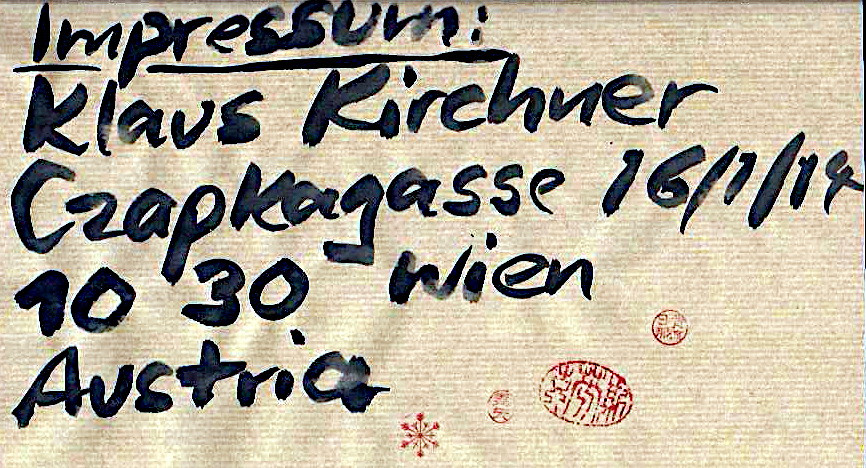 Impressum:
Klaus Kirchner
Czapkagasse 16/1/14
10 30 Wien
Austria